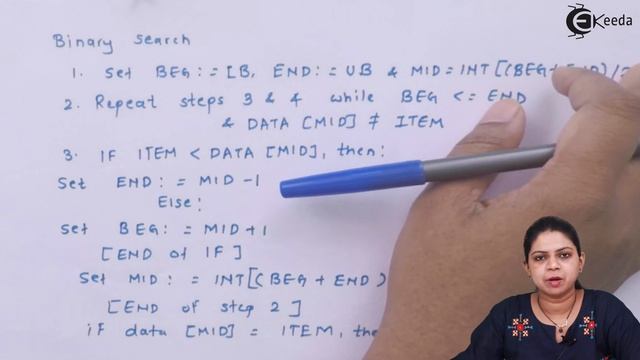 Ekeeda
Binary Search
1. Set BEG:= LB, END:= UB & MID=INT[(BEG+END)/2
2. Repeat steps 3 & 4 while BEG <= END
& DATA [MID] ≠ ITEM
3. IF ITEM < DATA [MID], then:
Set END:= MID -1
Else:
Set BEG:= MID+1
[END of IF]
Set MID:= INT[(BEG + END)
[END of step 2]
if data [MID] = ITEM, the